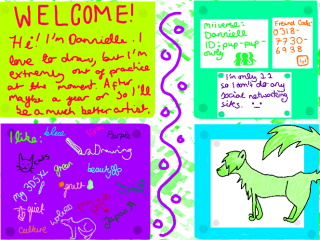 WELCOME!
Hi! I'm Dannielle. I
love to draw, but I'm
extremely out of practice
at the moment. After
maybe a year or so I'll
be a much better artist
Miiverse:
Dannielle
ID: pup-pup-
owly
Friend Code:
0318-
7730-
6938
I'm only 11
so I don't do any
social networking
sites.
I like:
blue
Purple
Drawing
cats
green
beautiful
my 3DS XL
fruit
quiet
wolves
Culture